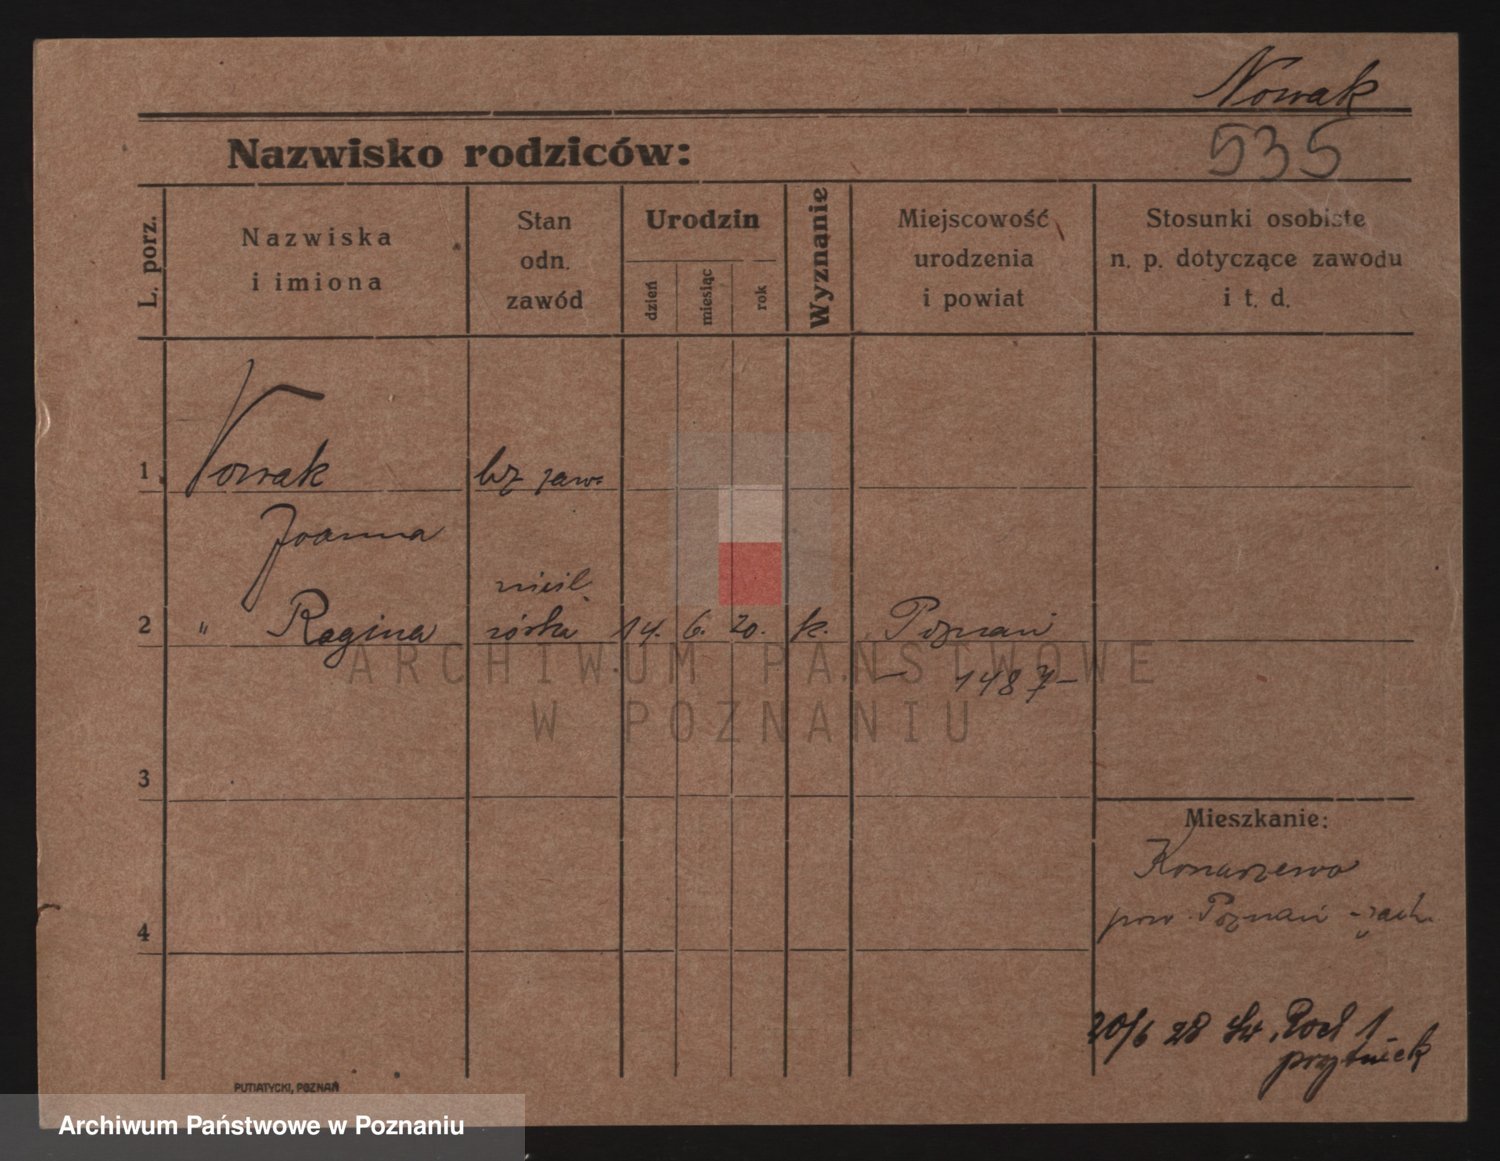 Nowak
535
Nazwisko rodziców:
L. porz.
Nazwiska
i imiona
Stan
odn.
zawód
Urodzin
dzień
miesiąc
rok
Wyznanie
Miejscowość
urodzenia
i powiat
Stosunki osobiste
n. p. dotyczące zawodu
i t. d.
1 Nowak bz zaw.
Joanna
2 " Regina córka 14. 6. 20. k. Poznań
— 1487 —
ARCHIWUM PAŃSTWOWE
W POZNANIU
3
Mieszkanie:
Konarzewo
pow. Poznań - zach.
4
20/6 28 Św. Roch 1
przytułek
PUTIATYCKI, POZNAŃ
Archiwum Państwowe w Poznaniu